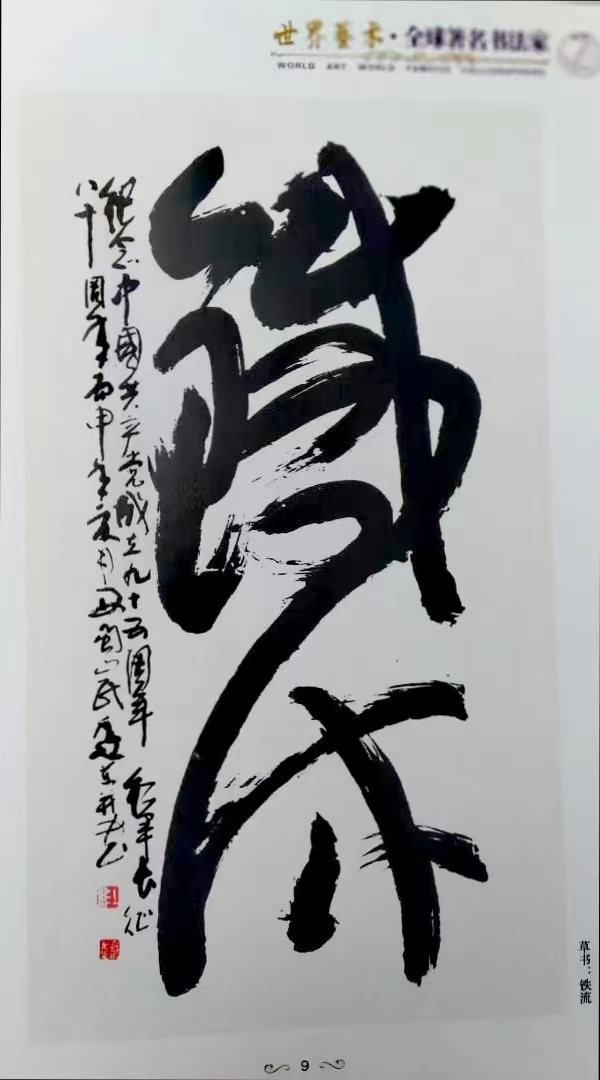 世界艺术·全球著名书法家
WORLD ART WORLD FAMOUS CALLIGRAPHERS
铁流
纪念中国共产党成立九十五周年 红军长征
八十周年 丙申年夏月
草书：铁流
9